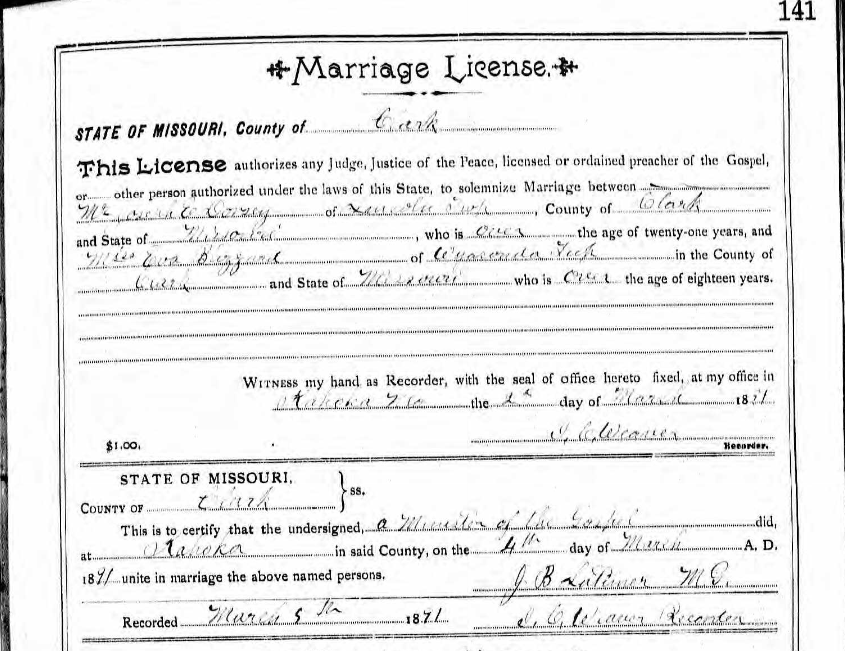 141
Marriage License.
STATE OF MISSOURI, County of Clark
This License authorizes any Judge, Justice of the Peace, licensed or ordained preacher of the Gospel,
or other person authorized under the laws of this State, to solemnize Marriage between
Mr Joseph E Dorsey of Lincoln Twp, County of Clark
and State of Missouri, who is over the age of twenty-one years, and
Miss Eva Blizzard of Wyaconda in the County of
Clark and State of Missouri who is over the age of eighteen years.
WITNESS my hand as Recorder, with the seal of office hereto fixed, at my office in
Kahoka Mo the day of March 1891
Weaver
$1.00. Recorder.
STATE OF MISSOURI,
COUNTY OF Clark ss.
This is to certify that the undersigned, a Minister of the Gospel did,
at Kahoka in said County, on the 4th day of March A. D.
1891 unite in marriage the above named persons.
J B Latimer M.G.
Recorded March 1891 Weaver Recorder